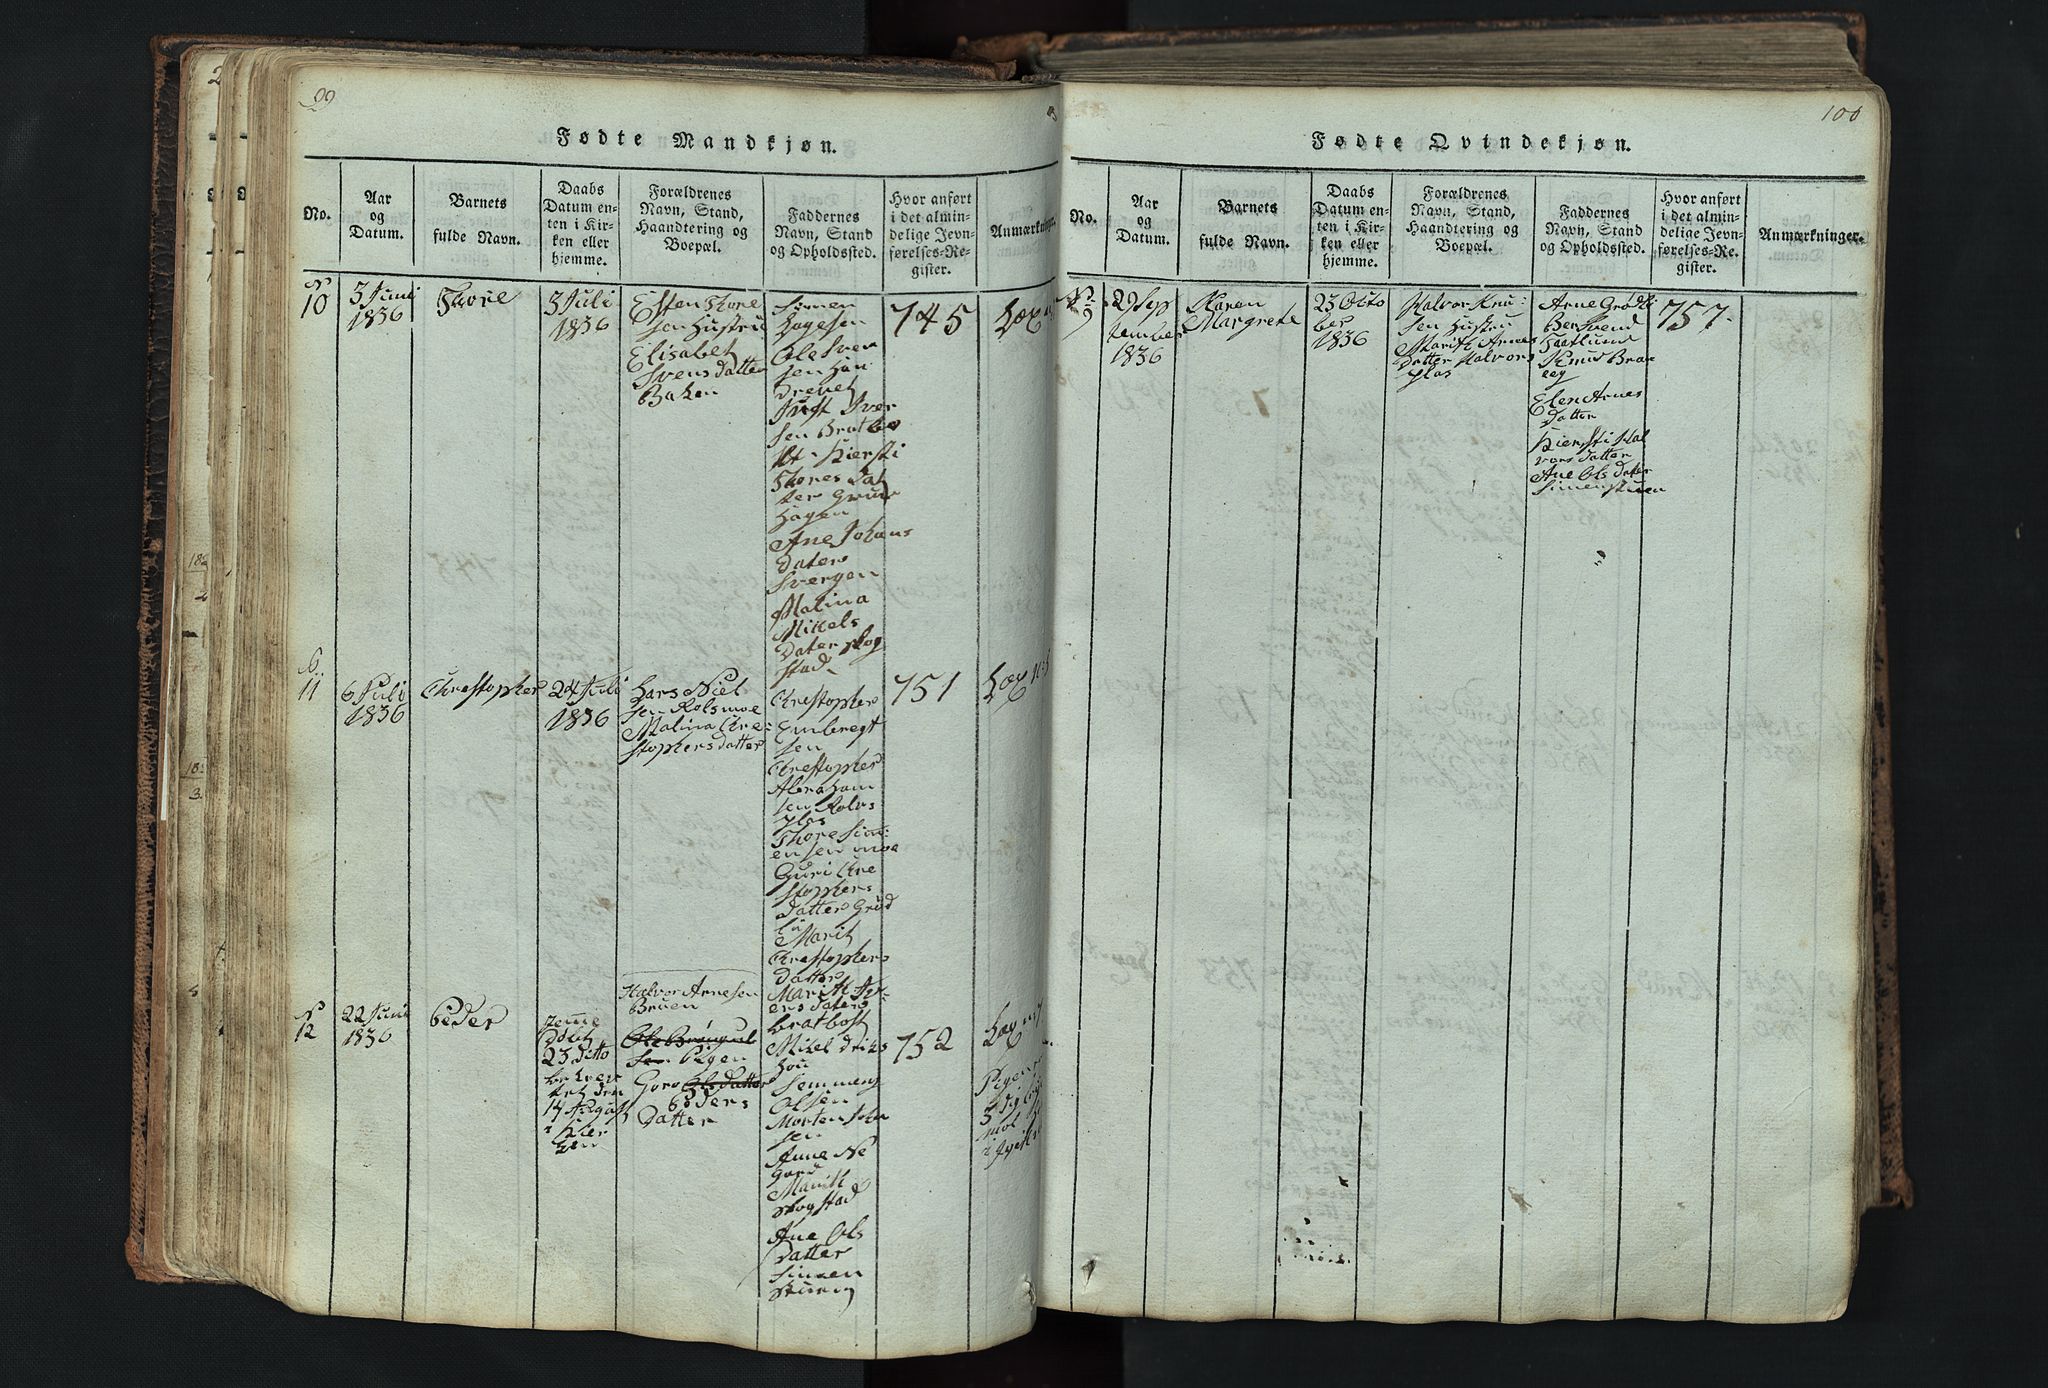 99
Fødte Mandkjøn.
No.
Aar
og
Datum.
Barnets
fulde Navn.
Daabs
Datum en-
ten i Kir-
ken eller
hjemme.
Forældrenes
Navn, Stand,
Haandtering og
Boepæl.
Faddernes
Navn, Stand
og Opholdssted.
Hvor anført
i det almin-
delige Jevn-
førelses-Re-
gister.
Anmærkninger.
N
10
3 Juni
1836
Thore
3 Juli
1836
Esten Thore
sen Hustru
Elisabet
Svens datter
Baken
Simen
Hagesen
Ole Sven
sen Han
drevet
Just Iver
sen Bratbo
st Kiersti
Thores dat
ter Grue
Hagen
Ane Johans
dater
Svergen
Malina
Mikels
dater Skog
stad
745
N
11
6 Juli
1836
Chrestopher
24 Juli
1836
Lars Niel
sen Rolsmoe
Malina Chre-
stophersdatter
Chrestopher
Embregt
sen
Chrestopher
Abraham
sen Rolvs
plas
Thore Sim-
ensen moe
Guri Chre
stophers
datter Grød
li
Marit
Chrestophers
datter
Marith
ers dater
Bratbost
751
N
12
22 Juni
1836
Peder
Hiemme
døbt
23 ditto
bekref
tet den
14 August
i Kier
ken
Halvor Arnesen
Bruen
Pigen
Goro
Peders
datter
Mikel
Semmeng
Olsen
Morten Joha
sen
Anne Ne
gard
Marith
Skogstad
Ane Ols
datter
Simen
stuen
752
Pigen
100
Fødte Qvindekjøn.
No.
Aar
og
Datum.
Barnets
fulde Navn.
Daabs
Datum en-
ten i Kir-
ken eller
hjemme.
Forældrenes
Navn, Stand,
Haandtering og
Boepæl.
Faddernes
Navn, Stand
og Opholdssted.
Hvor anført
i det almin-
delige Jevn-
førelses-Re-
gister.
Anmærkninger.
N
9
29 Sep
tember
1836
Karen
Margrete
23 Octo
ber
1836
Halvor Knu-
sen Hustru
Marith Arnes
datter Halvors
plas
Arne Grødli
Bersvend
Knud Bra
eg
Elen Arnes
datter
Kiersti Hal
vors datter
Ane Ols dater
Simenstuen
757